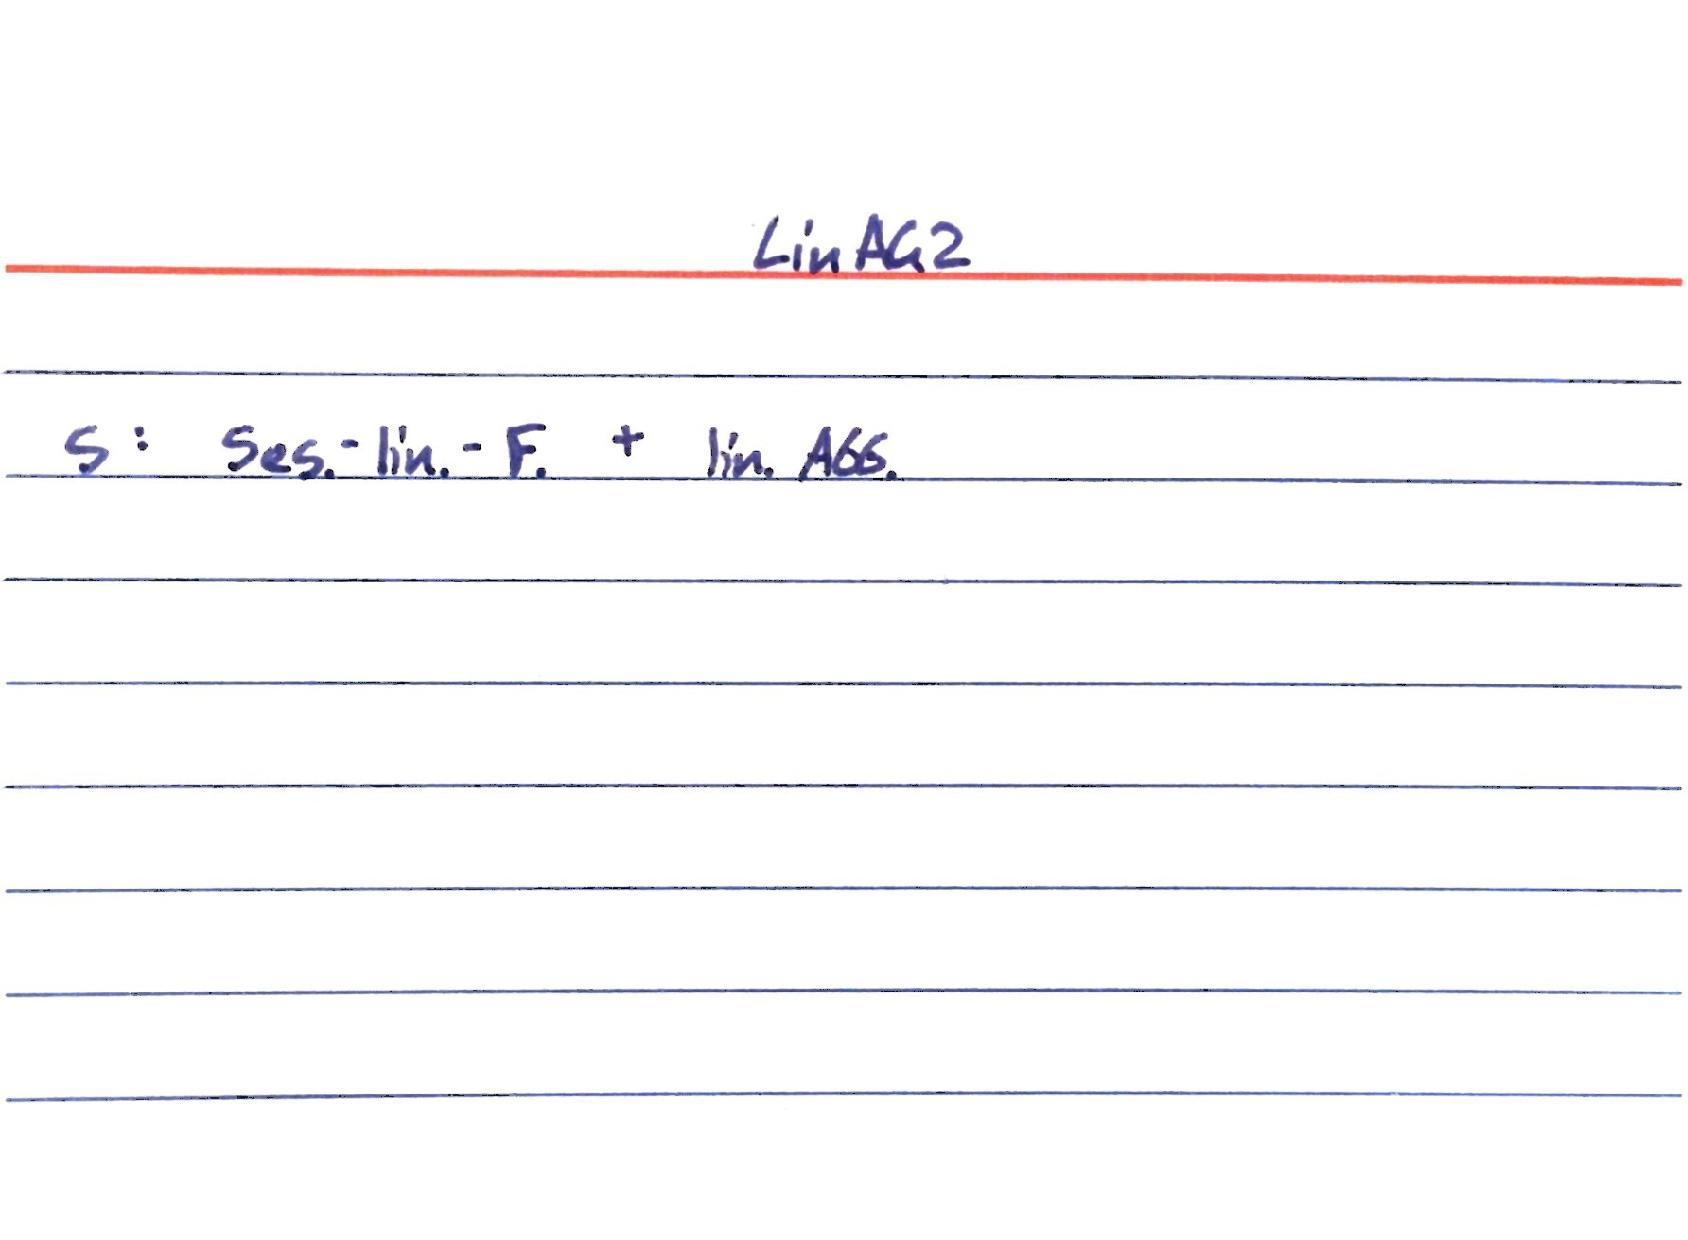 LinAG2
S: Ses.-lin.-F. + lin. Abb.